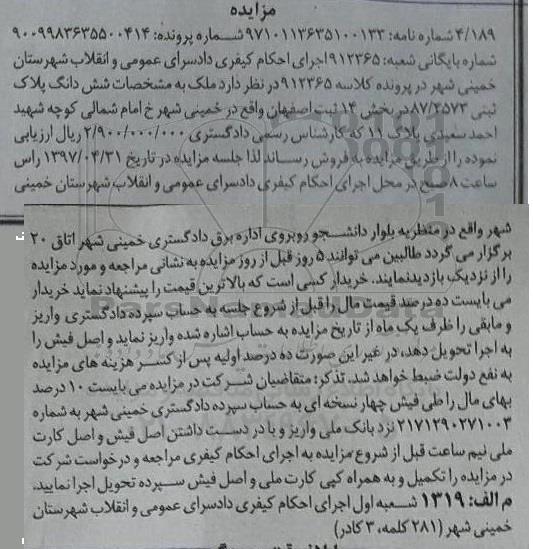 مزایده
۴/۱۸۹ شماره نامه: ۹۷۱۰۱۱۳۶۳۵۱۰۰۱۳۳ شماره پرونده: ۹۰۰۹۹۸۳۶۳۵۵۰۰۴۱۴
شماره بایگانی شعبه: ۹۱۲۳۶۵ اجرای احکام کیفری دادسرای عمومی و انقلاب شهرستان
خمینی شهر در پرونده کلاسه ۹۱۲۳۶۵ در نظر دارد ملک به مشخصات شش دانگ پلاک
ثبتی ۸۷/۲۵۷۳ در بخش ۱۴ ثبت اصفهان واقع در خمینی شهر خ امام شمالی کوچه شهید
احمد سعیدی پلاگ ۱۱ که کارشناس رسمی دادگستری ۲/۹۰۰/۰۰۰/۰۰۰ ریال ارزیابی
نموده را از طریق مزایده به فروش رساند لذا جلسه مزایده در تاریخ ۱۳۹۷/۰۴/۳۱ راس
ساعت ۸ صبح در محل اجرای احکام کیفری دادسرای عمومی و انقلاب شهرستان خمینی
شهر واقع در منظریه بلوار دانشجو روبروی اداره برق دادگستری خمینی شهر اتاق ۲۰
برگزار می گردد طالبین می توانند ۵ روز قبل از روز مزایده به نشانی مراجعه و مورد مزایده
را از نزدیک بازدید نمایند. خریدار کسی است که بالاترین قیمت را پیشنهاد نماید خریدار
می بایست ده درصد قیمت مال را قبل از شروع جلسه به حساب سپرده دادگستری واریز
و مابقی را ظرف یک ماه از تاریخ مزایده به حساب اشاره شده واریز نماید و اصل فیش را
به اجرا تحویل دهد، در غیر این صورت ده درصد اولیه پس از کسر هزینه های مزایده
به نفع دولت ضبط خواهد شد. تذکر: متقاضیان شرکت در مزایده می بایست ۱۰ درصد
بهای مال را طی فیش چهار نسخه ای به حساب سپرده دادگستری خمینی شهر به شماره
۲۱۷۱۲۹۰۲۷۱۰۰۳ نزد بانک ملی واریز و با در دست داشتن اصل فیش و اصل کارت
ملی نیم ساعت قبل از شروع مزایده به اجرای احکام کیفری مراجعه و درخواست شرکت
در مزایده را تکمیل و به همراه کپی کارت ملی و اصل فیش سپرده تحویل اجرا نمایید.
م الف: ۱۳۱۹ شعبه اول اجرای احکام کیفری دادسرای عمومی و انقلاب شهرستان
خمینی شهر (۲۸۱ کلمه، ۳ کادر)